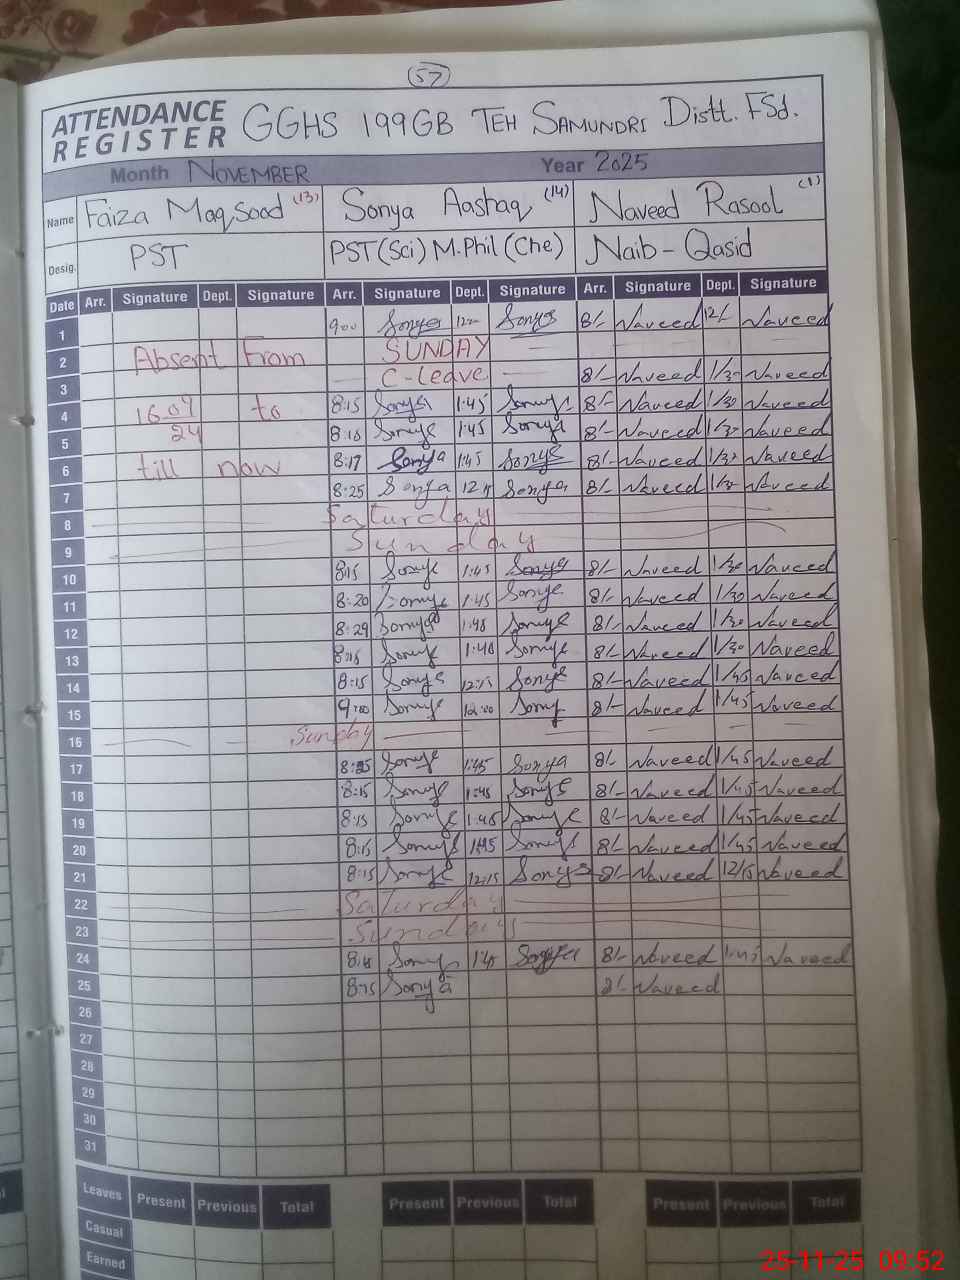 57
ATTENDANCE REGISTER GGHS 199GB TEH SAMUNDRI Distt. FSd.
Month NOVEMBER Year 2025
Name Faiza Maqsood (13) Sonya Aashaq (14) Naveed Rasool (1)
Desig. PST PST (Sci) M.Phil (Che) Naib-Qasid
Date Arr. Signature Dept. Signature Arr. Signature Dept. Signature Arr. Signature Dept. Signature
1 9:00 Sonya Sonya 8/- Naveed 12/- Naveed
2 Absent From SUNDAY
3 C-leave 8/- Naveed 1/30 Naveed
4 16-09 to 8:15 Sonya 1:45 Sonya 8/- Naveed 1/30 Naveed
5 24 8:18 Sonya 1:45 Sonya 8/- Naveed 1/30 Naveed
6 till now 8:17 Sonya 1:45 Sonya 8/- Naveed 1/30 Naveed
7 8:25 Sonya Sonya 8/- Naveed Naveed
8 Saturday
9 Sunday
10 8:15 Sonya 1:45 Sonya 8/- Naveed 1/30 Naveed
11 8:20 Sonya 1:45 Sonya 8/- Naveed 1/30 Naveed
12 8:29 Sonya 1:48 Sonya 8/- Naveed 1/30 Naveed
13 Sonya 1:48 Sonya 8/- Naveed 1/30 Naveed
14 8:15 Sonya 12:15 Sonya 8/- Naveed 1/45 Naveed
15 9:00 Sonya 12:00 Sony 8/- Naveed 1/45 Naveed
16 Sunday
17 8:25 Sonya 1:45 Sonya 8/- Naveed 1/45 Naveed
18 8:15 Sonya 1:45 Sonya 8/- Naveed 1/45 Naveed
19 8:15 Sonya 1:48 Sonya 8/- Naveed 1/45 Naveed
20 8:15 Sonya 1:45 Sonya 8/- Naveed 1/45 Naveed
21 8:15 Sonya 12:15 Sonya 8/- Naveed 12/15 Naveed
22 Saturday
23 Sunday
24 Sonya Sonya 8/- Naveed 1:45 Naveed
25 8:15 Sonya 8/- Naveed
26
27
28
29
30
31
Leaves Present Previous Total Present Previous Total Present Previous Total
Casual
Earned
25-11-25 09:52